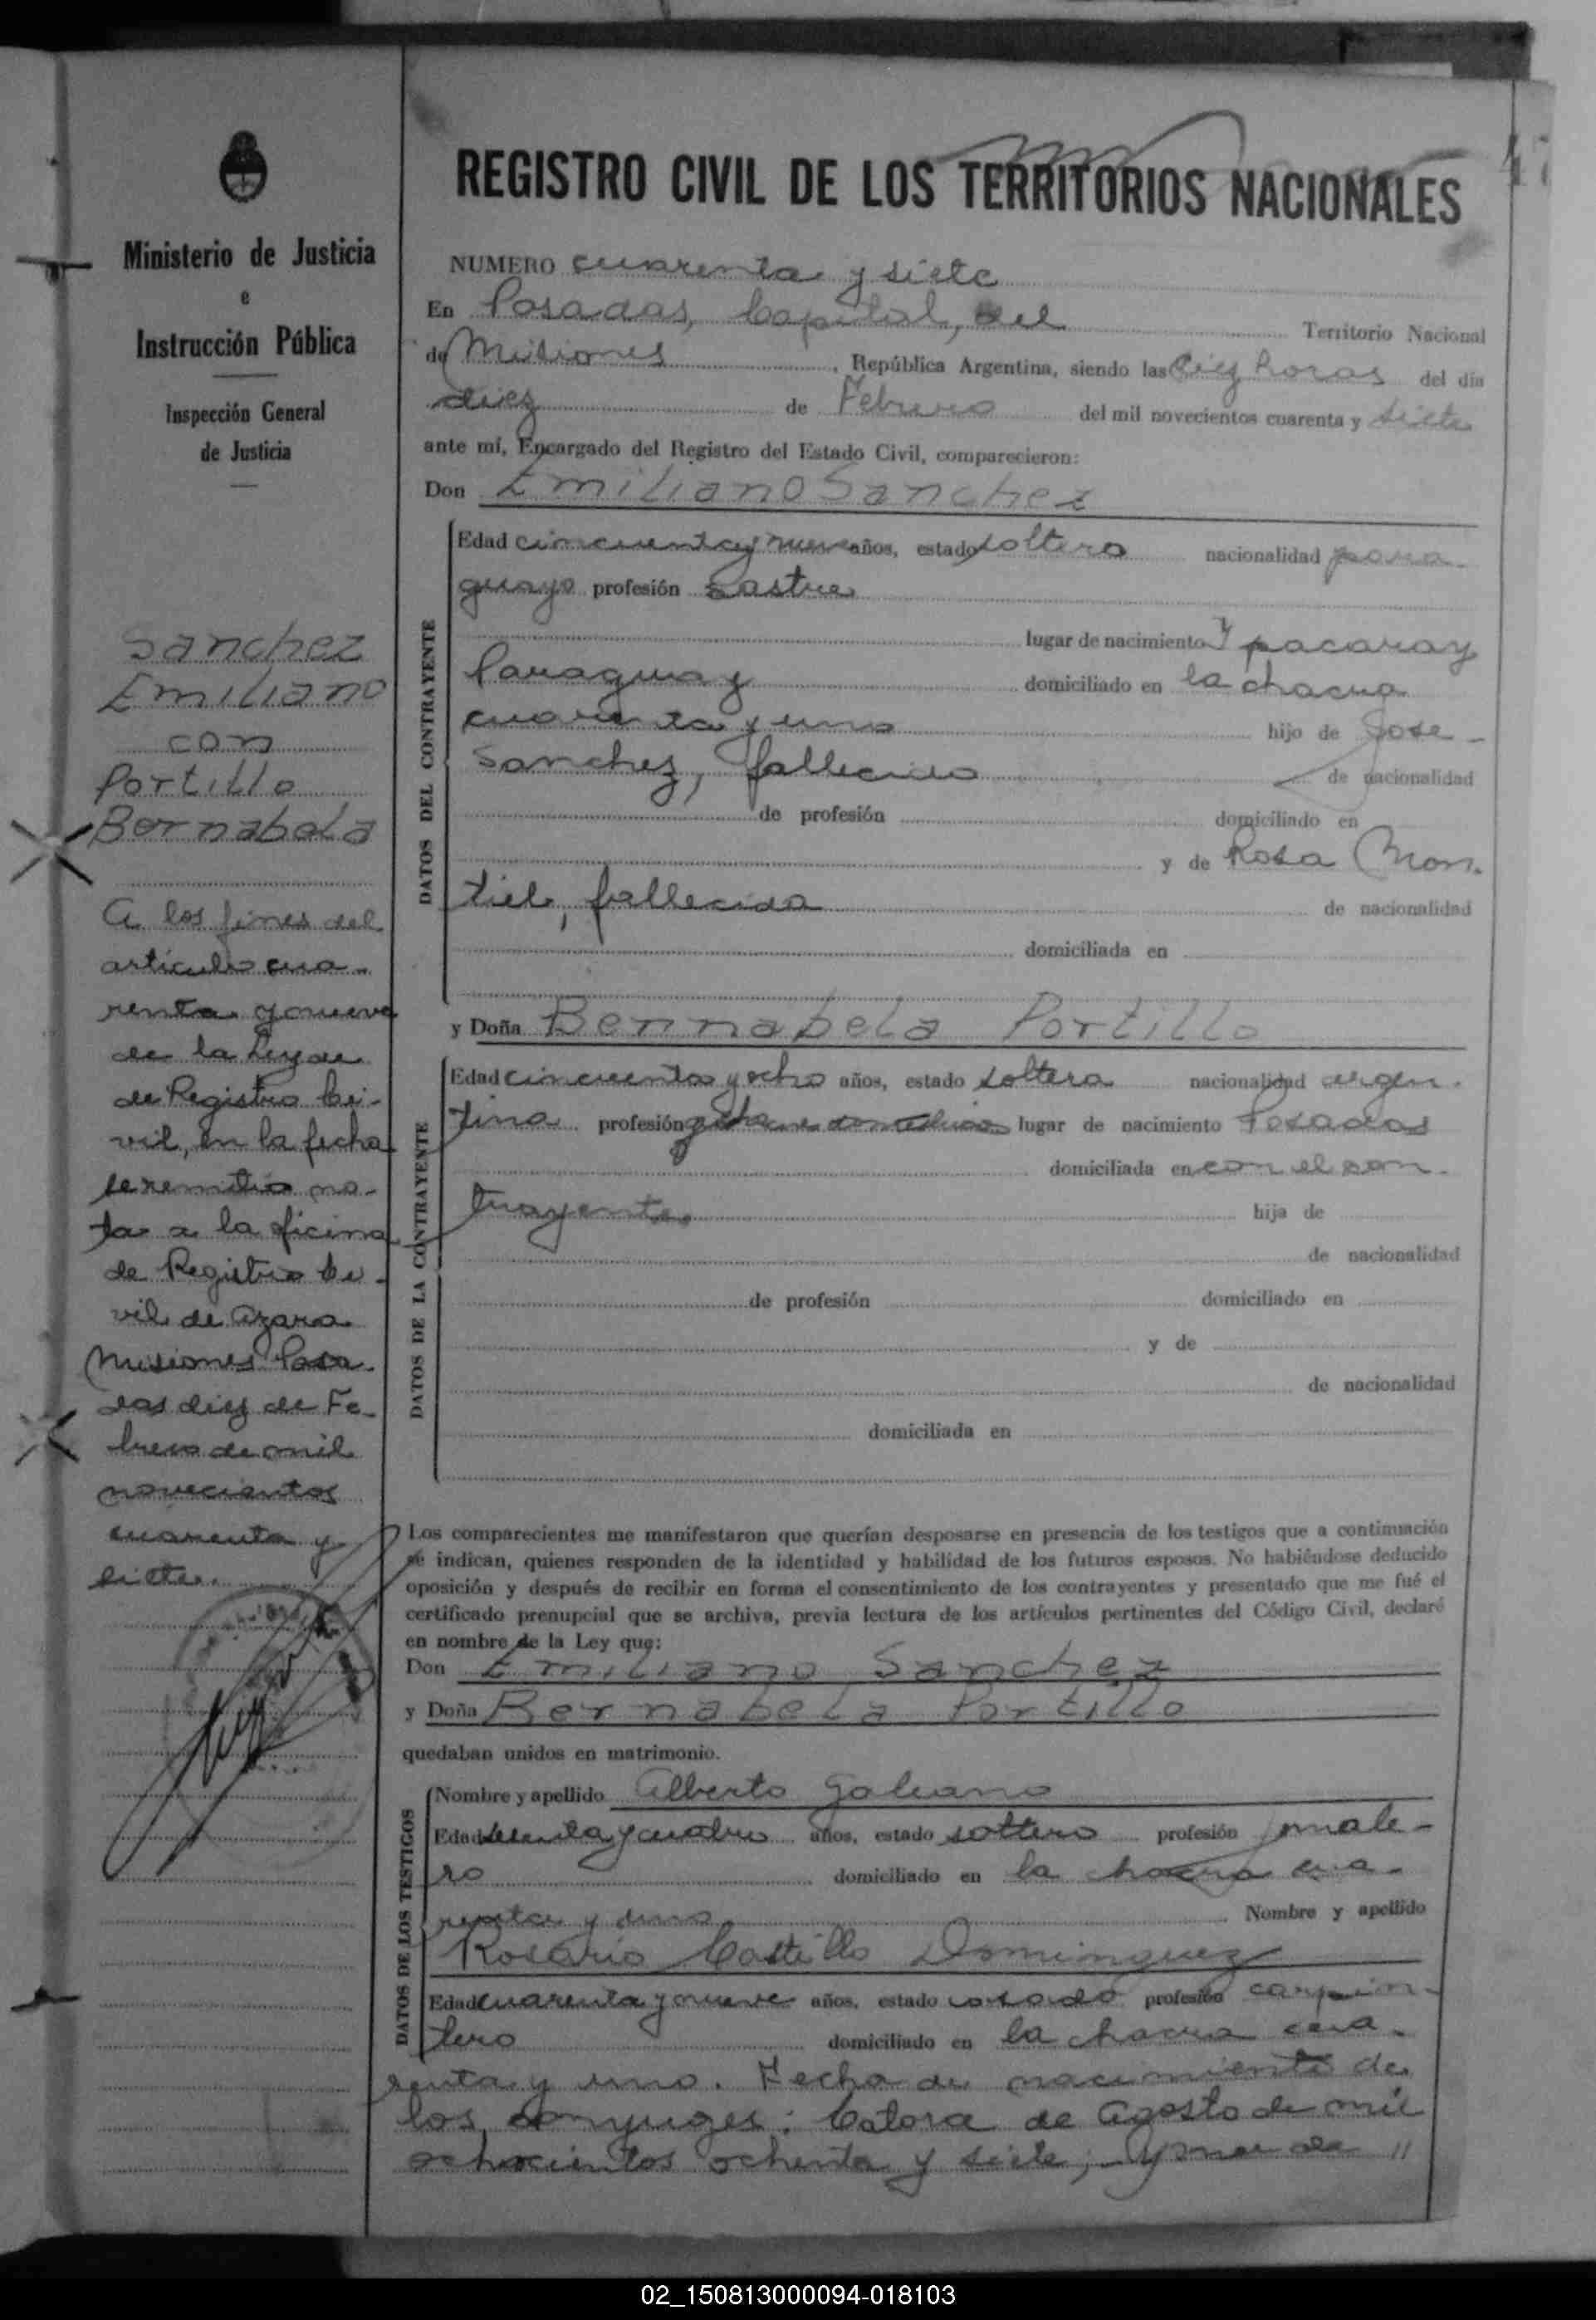 REGISTRO CIVIL DE LOS TERRITORIOS NACIONALES
47
Ministerio de Justicia
e
Instrucción Pública
Inspección General
de Justicia
Sanchez
Emiliano
con
Portillo
Bernabela
A los fines del
articulo cua-
renta y nueve
de la Ley de
de Registro Ci-
vil, en la fecha
se remitio no-
ta a la oficina
de Registro Ci-
vil de Azara
Misiones Posa
das diez de Fe-
brero de mil
novecientos
cuarenta y
siete.
NUMERO cuarenta y siete
En Posadas, Capital, del Territorio Nacional
de Misiones, República Argentina, siendo las diez horas del día
diez de Febrero del mil novecientos cuarenta y siete
ante mí, Encargado del Registro del Estado Civil, comparecieron:
Don Emiliano Sanchez
DATOS DEL CONTRAYENTE
Edad cincuenta y nueve años, estado soltero nacionalidad para-
guayo profesión sastre
lugar de nacimiento Ypacaray
Paraguay domiciliado en la chacra
cuarenta y uno hijo de Jose
Sanchez, fallecido de nacionalidad
de profesión domiciliado en
y de Rosa Mon-
tiel, fallecida de nacionalidad
domiciliada en
y Doña Bernabela Portillo
DATOS DE LA CONTRAYENTE
Edad cincuenta y ocho años, estado soltera nacionalidad argen-
tina profesión lugar de nacimiento Posadas
domiciliada en con el con-
trayente hija de
de nacionalidad
de profesión domiciliado en
y de
de nacionalidad
domiciliada en
Los comparecientes me manifestaron que querían desposarse en presencia de los testigos que a continuación
se indican, quienes responden de la identidad y habilidad de los futuros esposos. No habiéndose deducido
oposición y después de recibir en forma el consentimiento de los contrayentes y presentado que me fué el
certificado prenupcial que se archiva, previa lectura de los artículos pertinentes del Código Civil, declaré
en nombre de la Ley que:
Don Emiliano Sanchez
y Doña Bernabela Portillo
quedaban unidos en matrimonio.
DATOS DE LOS TESTIGOS
Nombre y apellido Alberto Galeano
Edad y cuatro años, estado soltero profesión jornale-
ro domiciliado en la chacra cua-
renta y uno Nombre y apellido
Rosario Castillo Dominguez
Edad cuarenta y nueve años, estado casado profesión carpin-
tero domiciliado en la chacra cua-
renta y uno. Fecha de nacimiento de
los conyuges: Catorce de Agosto de mil
ochocientos ochenta y siete; y de "
02_150813000094-018103